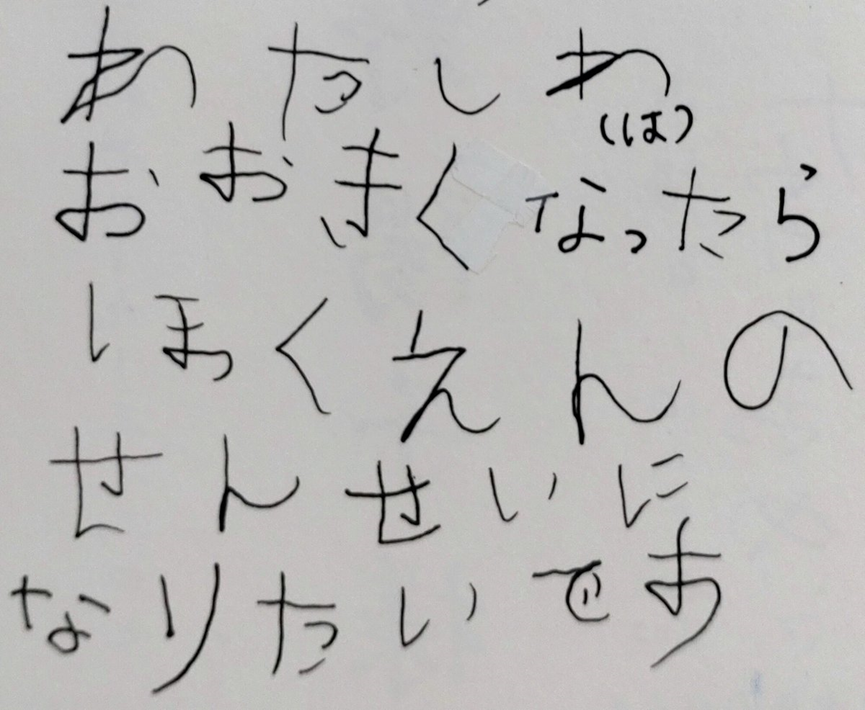 わたしわ
(は)
おおきくなったら
ほくえんの
せんせいに
なりたいです